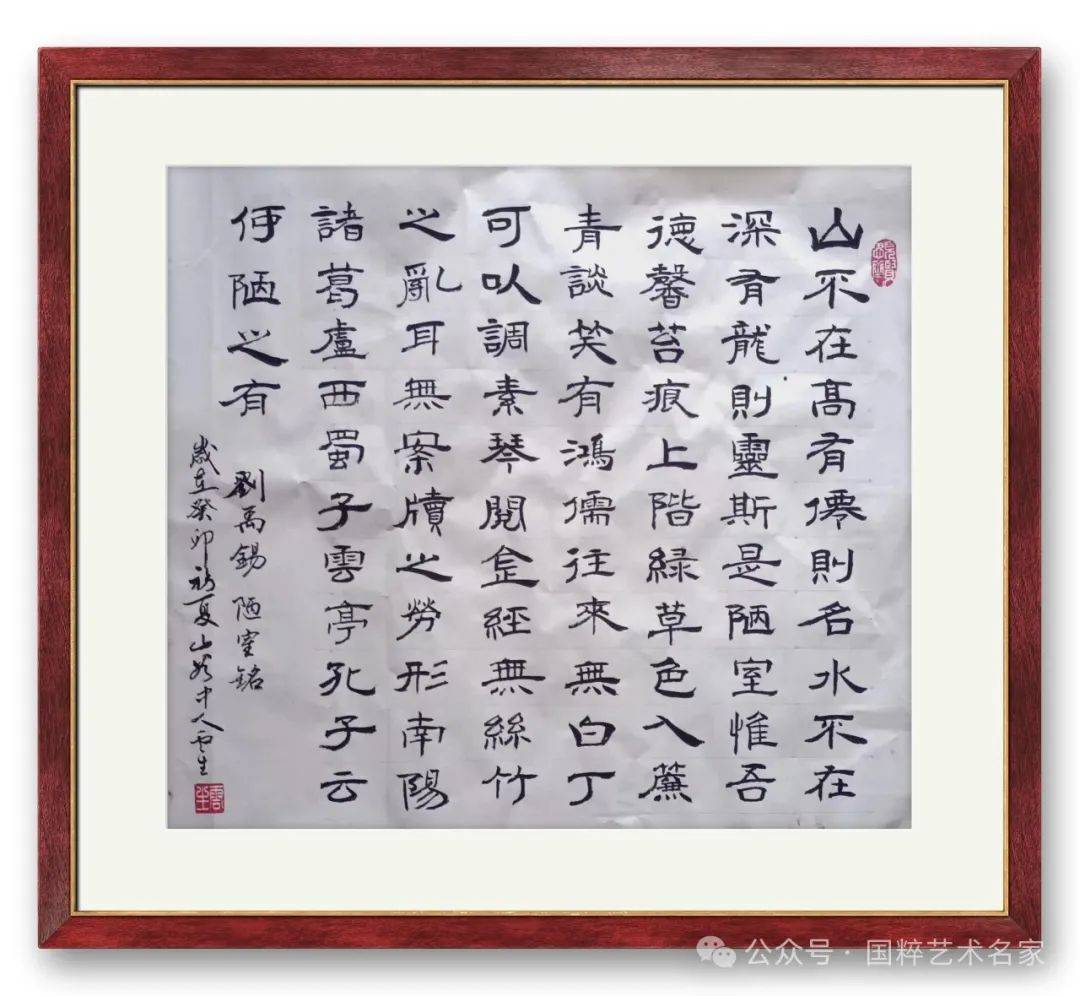 山不在髙有僊則名水不在
深有龍則靈斯是陋室惟吾
德馨苔痕上階緑草色入簾
青談笑有鴻儒往來無白丁
可以調素琴閱金經無絲竹
之亂耳無案牘之勞形南陽
諸葛盧西蜀子雲亭孔子云
何陋之有
劉禹錫 陋室銘
歲在癸卯初夏山野中人雲生
雲生
公众号 · 国粹艺术名家